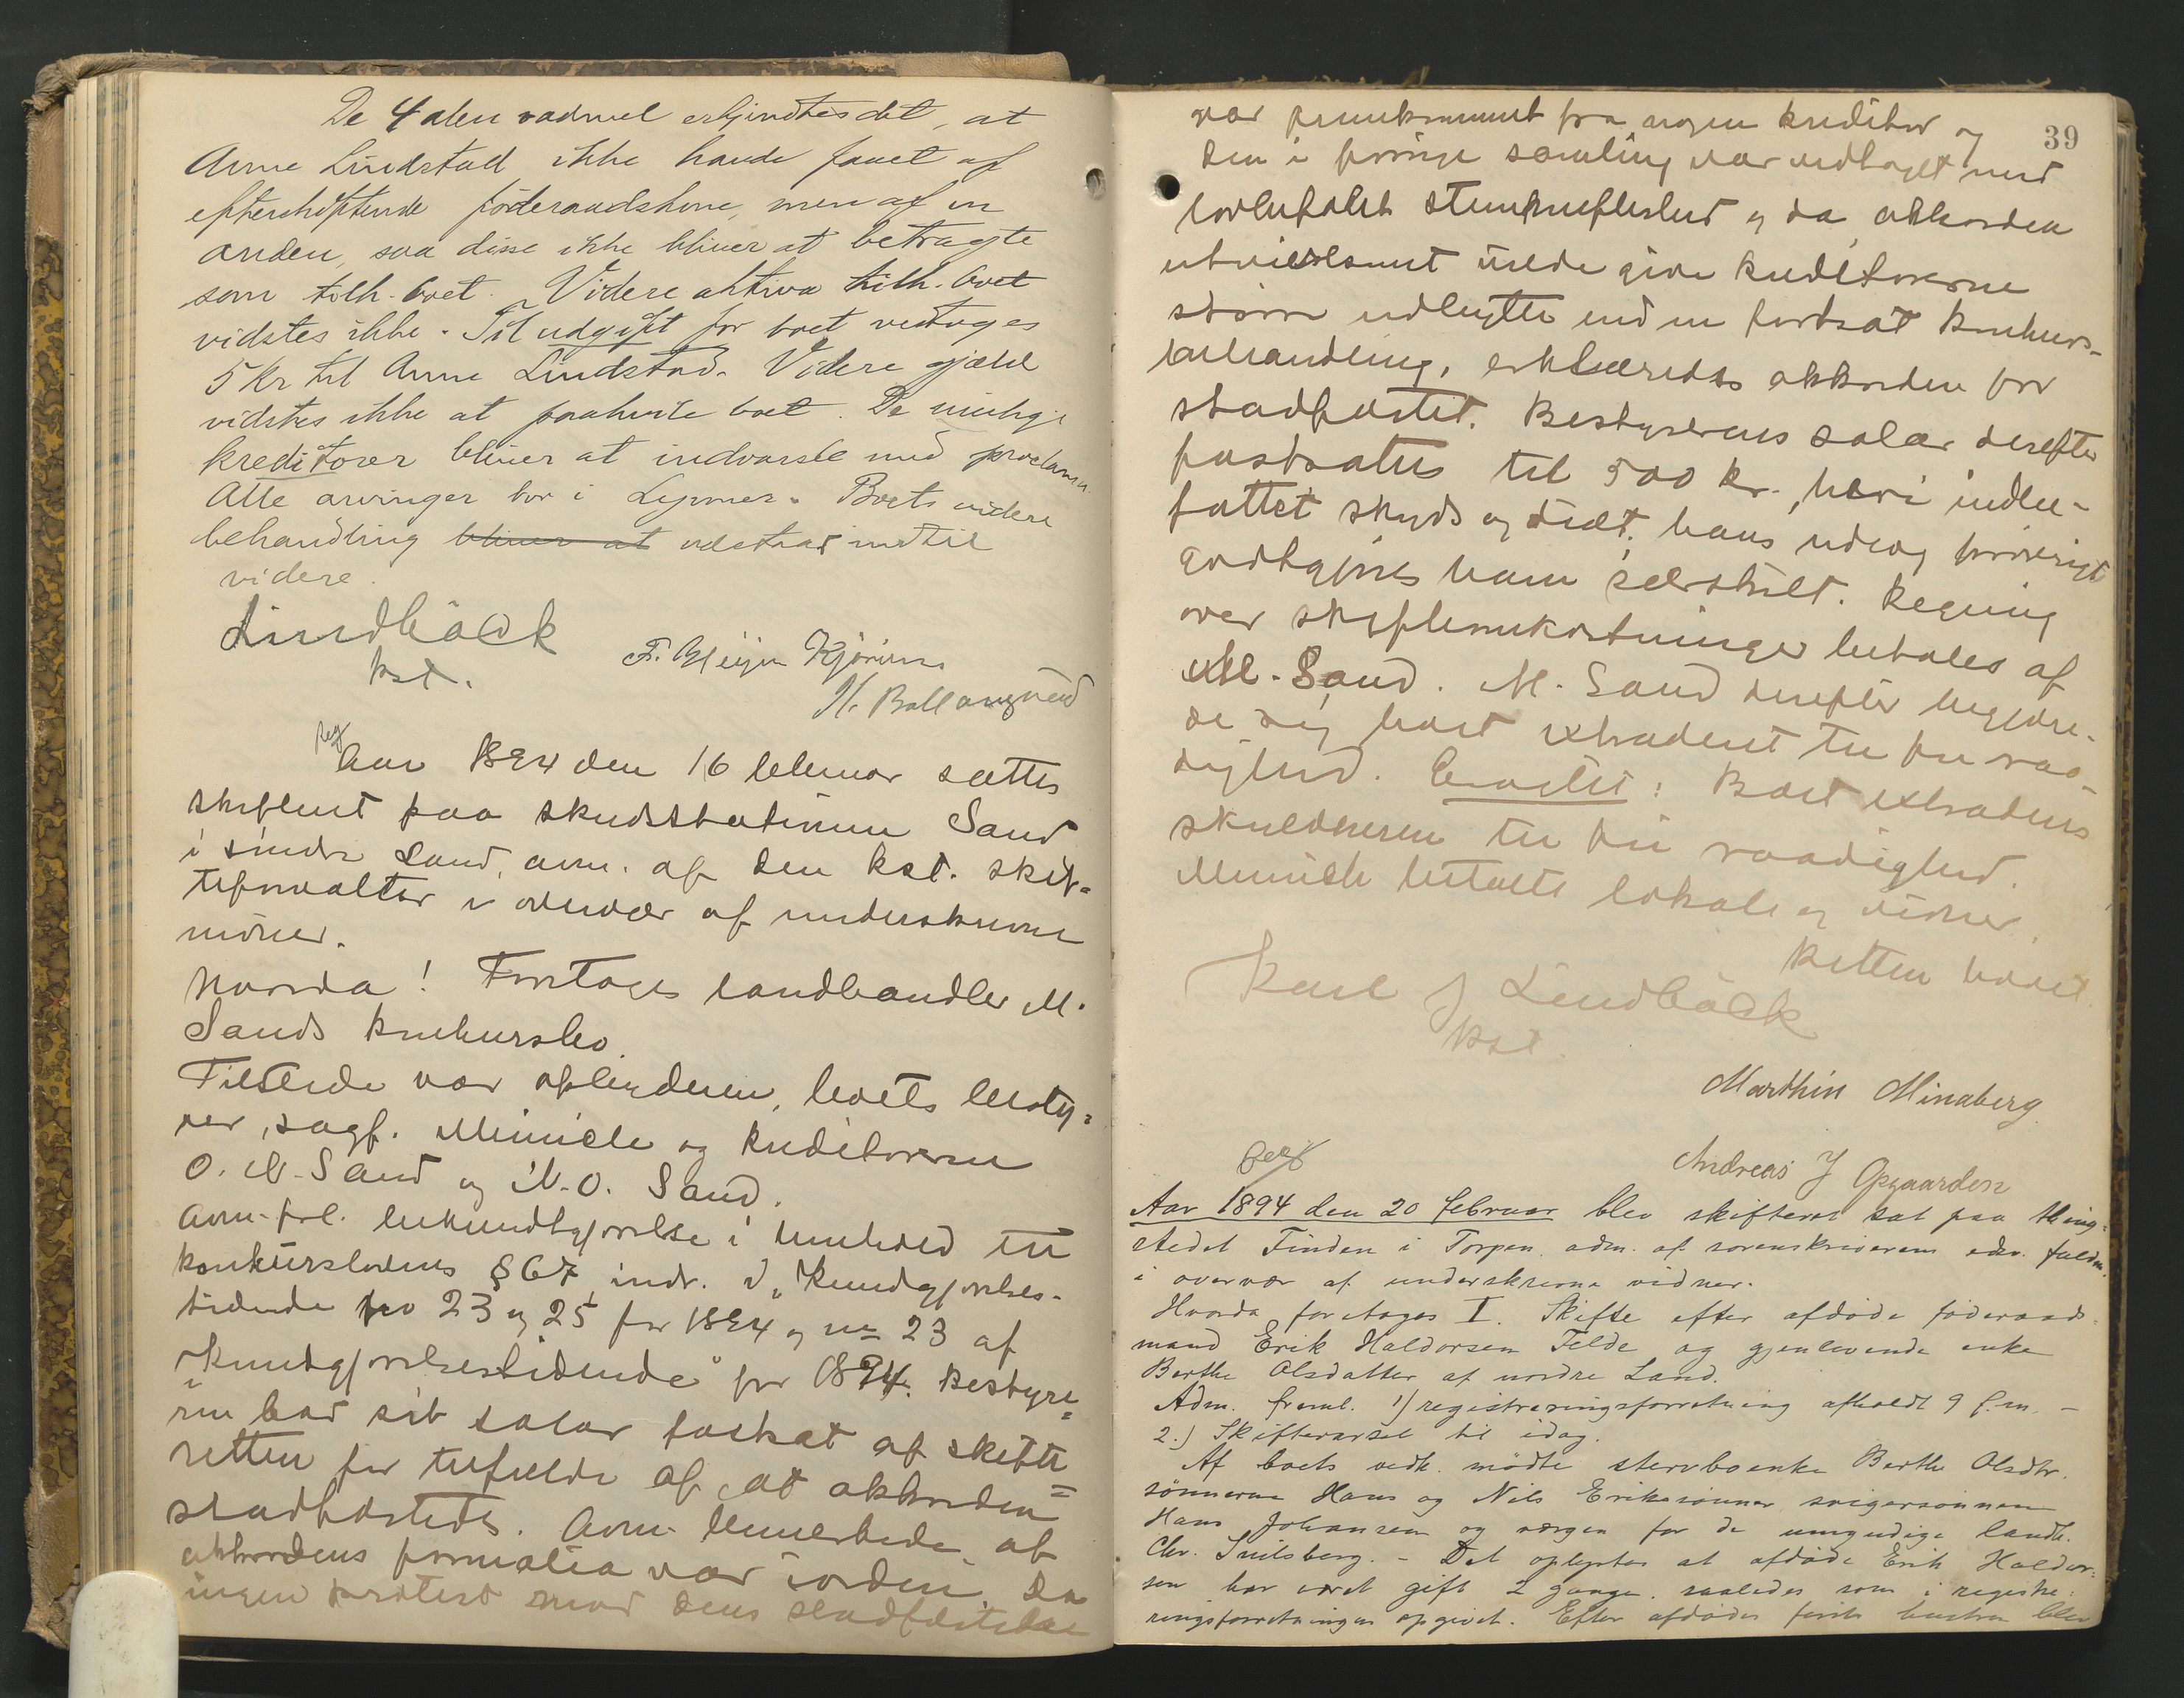 De 4 alen vadmel erkjendtes det, at
Anne Lindstad ikke havde faaet af
efterskiftende föderaadskone, men af en
anden, saa disse ikke bliver at betragte
som tilh. boet. Videre aktiva tilh. boet
vidstes ikke. Til udgift for boet vedtoges
5 kr til Anne Lindstad. Videre gjæld
vidstes ikke at paahvile boet. De mulige
kreditorer bliver at indvarsle med proclama
Alle arvinger bor i Boets videre
behandling bliver at udestaar indtil
videre.
Lindbäck
kst.
H. Ballangrud
Reg
Aar 1894 den 16 februar sattes
skifteret paa skydsstationen Sand
i söndre Land, adm. af den kst. skif-
teforvalter i overvær af underskrevne
vidner.
Hvorda! Foretoges landhandler M.
Sands konkursbo.
Tilstede var opbyderen, boets besty-
rer, sagf. Münich og kreditorerne
O. M. Sand og M. O. Sand.
Adm. frl. bekjendtgjørelse i henhold til
konkurslovens § 67, indr. i „Kundgjørelses-
tidende no 23 og 25 for 1894 og no 23 af
„Kundgjørelsestidende" for 1894. Bestyre-
ren bad sit salær fastsat af skifte-
retten for tilfælde af at akkorden
stadfæstedes. Adm. bemerkede at
akkordens formalia var iorden. Da
ingen protest mod dens stadfæstelse
39
var fremkommet fra nogen kreditor og
den i forrige samling var vedtaget med
lovbefalet stemmefleslhed og da akkorden
utvivlsomt vilde give kreditorerne
större udbytte end en fortsat konkurs-
behandling, erklæredes akkorden for
stadfæstet. Bestyrerens salær derefter
fastsattes til 500 kr., heri indbe-
fattet skyds og diæt, hans udlæg forøvrigt
godtgjøres ham særskilt. Regning
over skifteomkostninger betales af
M. Sand. M. Sand derefter begjære-
de sig boet extraderet til fri raa-
dighed. Eragtet: Boet extraderes
skyldneren til fri raadighed.
Münich betalte lokale og vidner.
Retten hævet.
Karl J Lindbäck
kst.
Marthin Minaberg
Andreas J Opgaarden
Reg
Aar 1894 den 20 februar blev skifteret sat paa thing-
stedet Finden i Torpen, adm. af sorenskriverens edsv. fuldm.
i overvær af underskrevne vidner.
Hvorda foretoges I. Skifte efter afdöde föderaads-
mand Erik Haldorsen Felde og gjenlevende enke
Berthe Olsdatter af nordre Land.
Adm. freml. 1) registreringsforretning afholdt 9 f. m. -
2.) Skiftevarsel til idag.
Af boets vedk. mödte stervboenke Berthe Olsdtr.
sönnerne Hans og Nils Erikssönner, svigersönnen
Hans Johansen og vergen for de umyndige landh.
Chr. Snilsberg. - Det oplystes at afdöde Erik Haldor-
sen har været gift 2 gange, saaledes som i registre-
ringsforretningen opgivet. Efter afdödes förste hustru blev